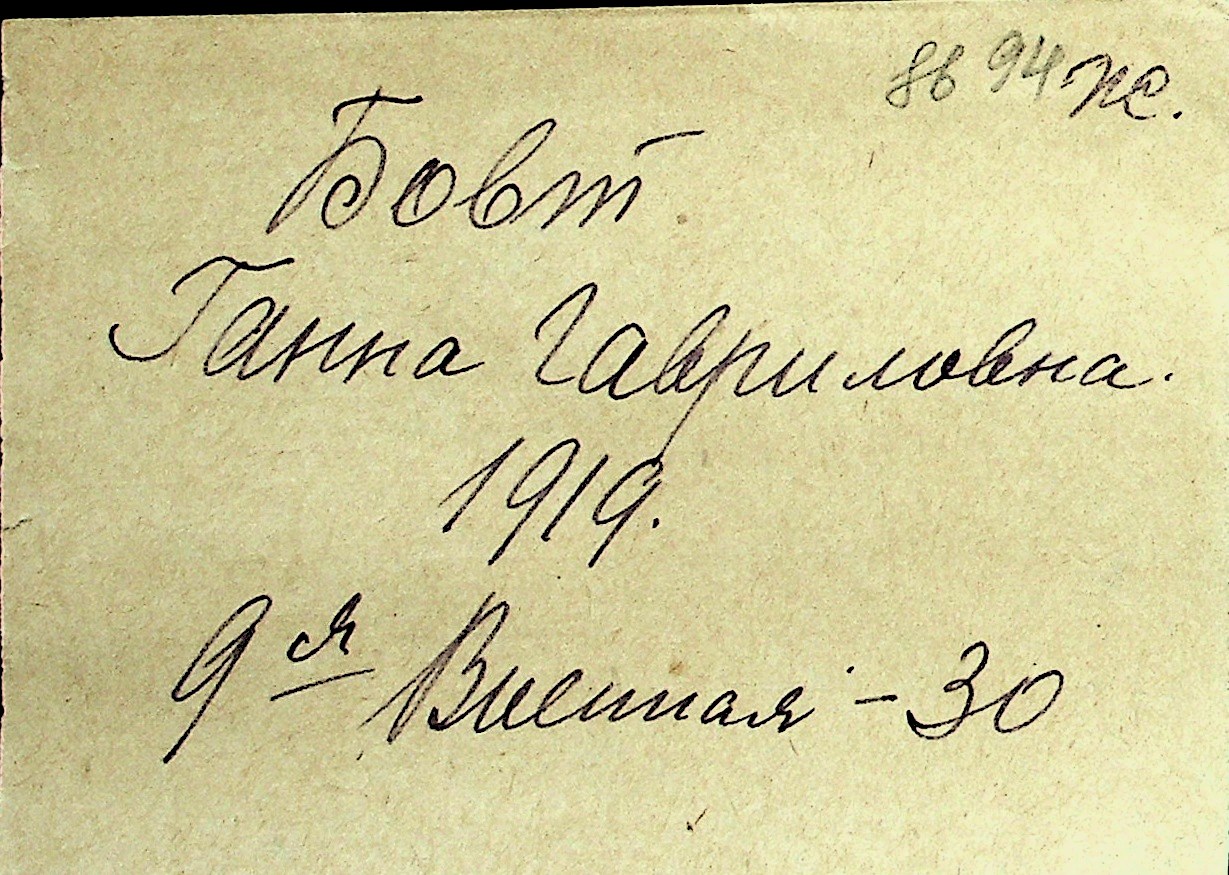 8694 пс.
Бовт
Ганна Гавриловна.
1919.
9я Военная - 30